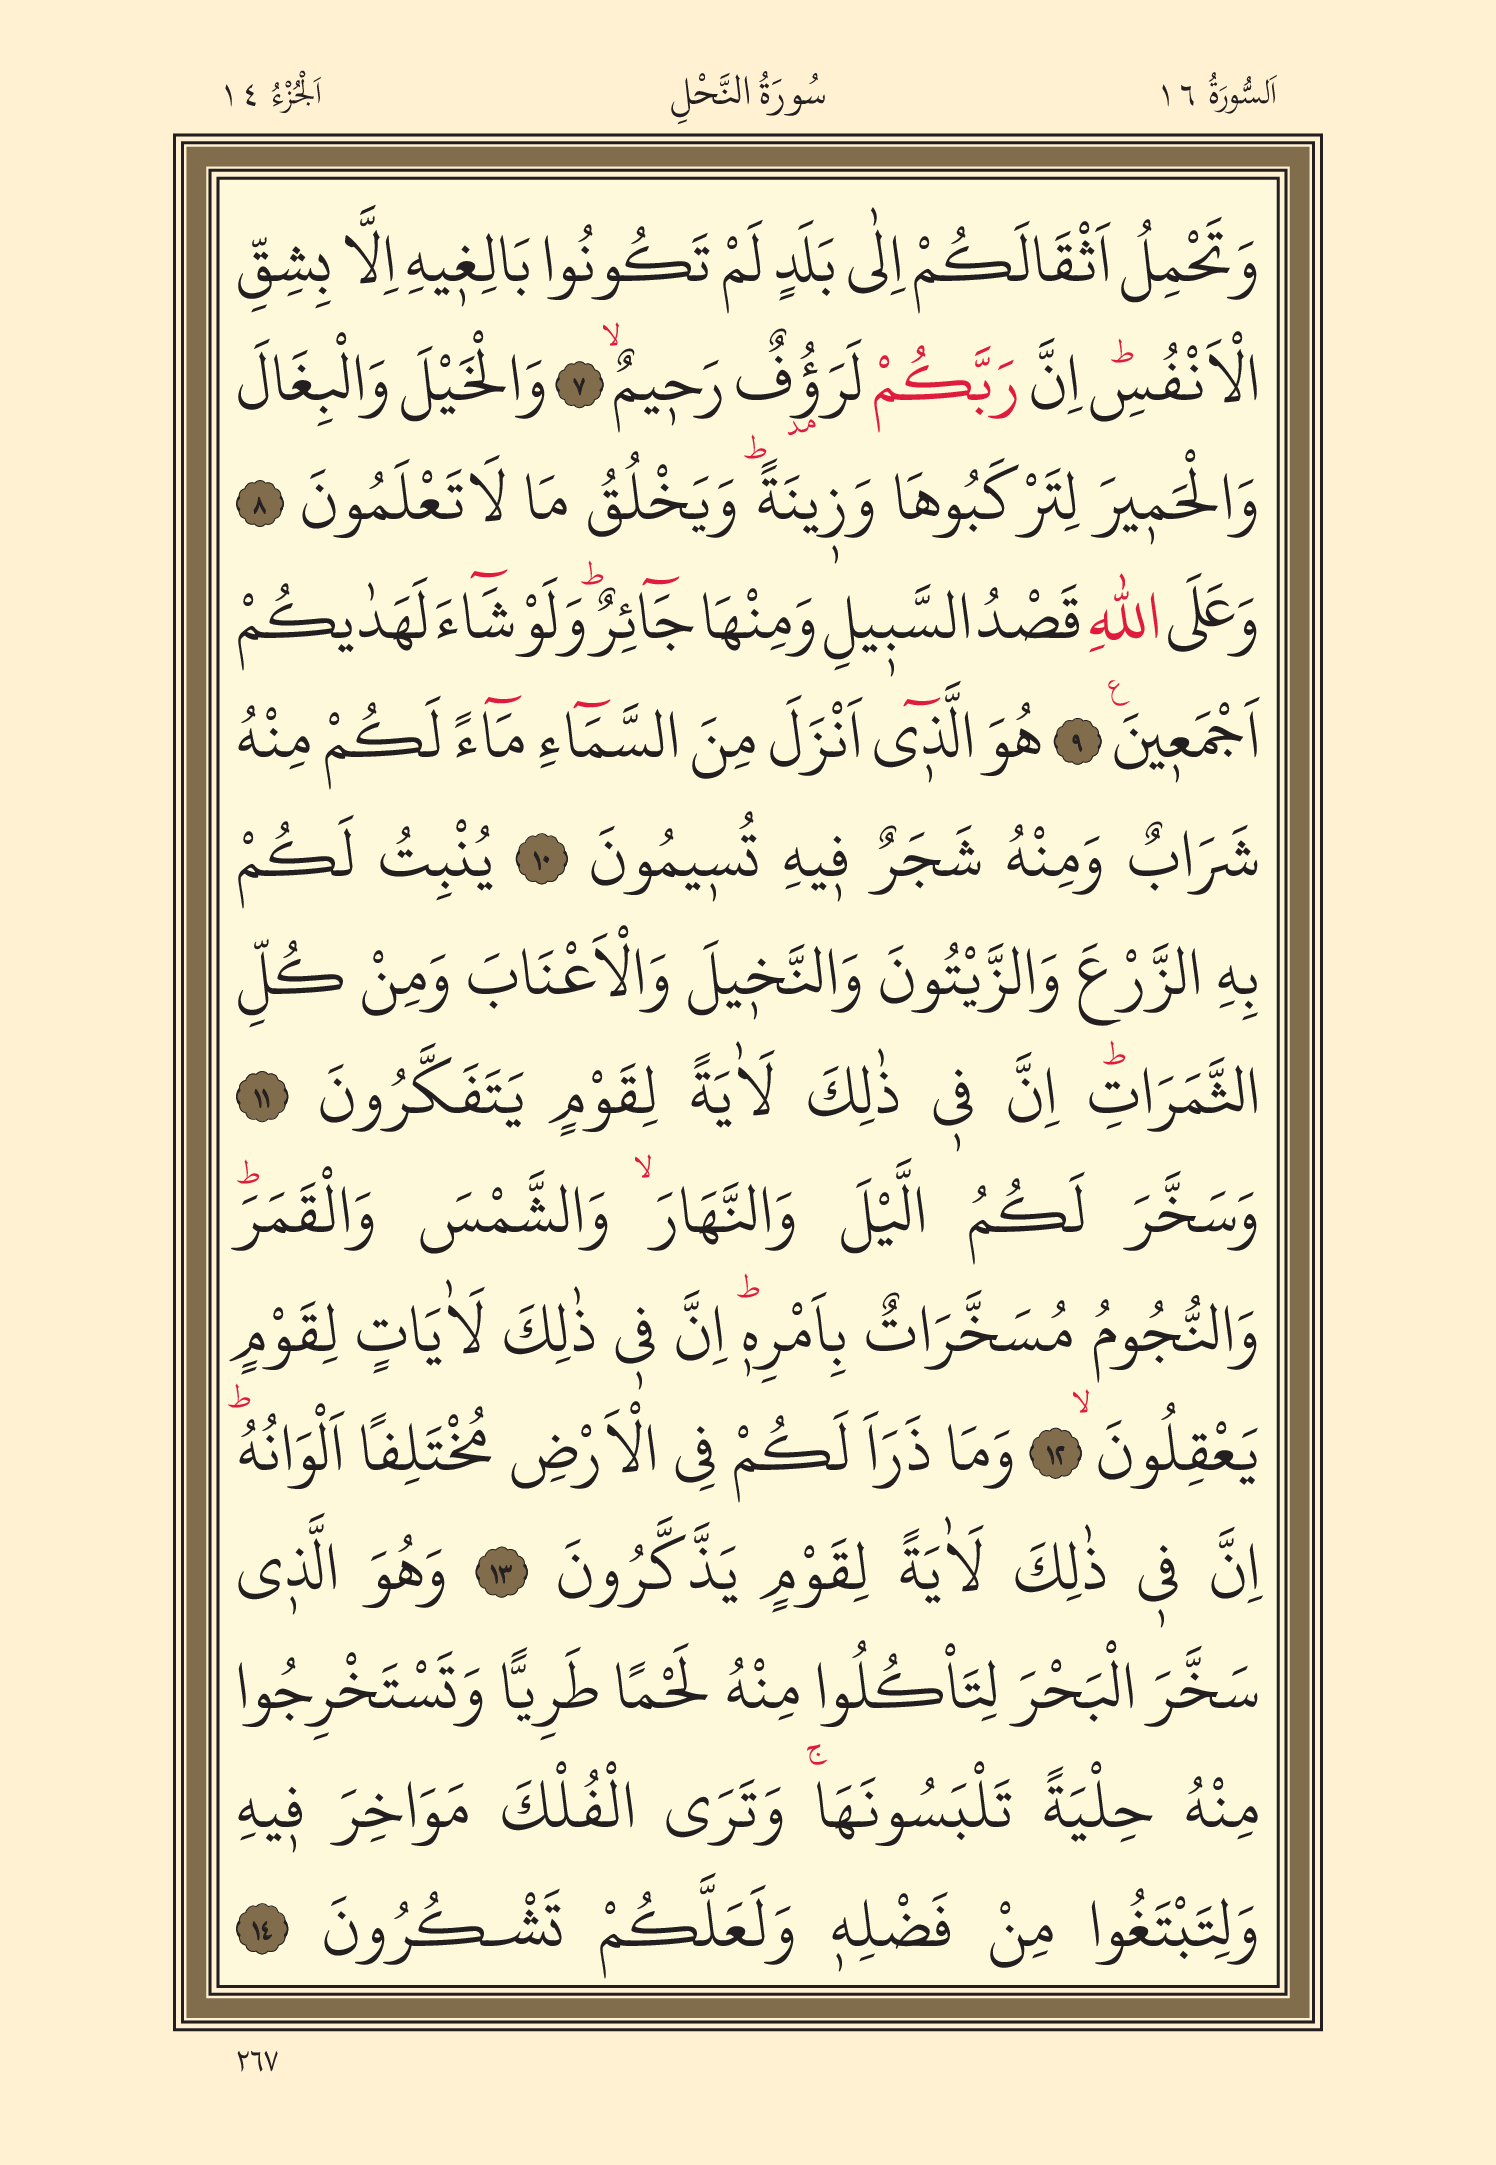 اَلسُّورَةُ ١٦ سُورَةُ النَّحْلِ اَلْجُزْءُ ١٤
وَتَحْمِلُ اَثْقَالَكُمْ اِلٰى بَلَدٍ لَمْ تَكُونُوا بَالِغ۪يهِ اِلَّا بِشِقِّ
الْاَنْفُسِۜ اِنَّ رَبَّكُمْ لَرَؤُ۫فٌ رَح۪يمٌۙ ﴿٧﴾ وَالْخَيْلَ وَالْبِغَالَ
وَالْحَم۪يرَ لِتَرْكَبُوهَا وَز۪ينَةًۜ وَيَخْلُقُ مَا لَا تَعْلَمُونَ ﴿٨﴾
وَعَلَى اللّٰهِ قَصْدُ السَّب۪يلِ وَمِنْهَا جَٓائِرٌۜ وَلَوْ شَٓاءَ لَهَدٰيكُمْ
اَجْمَع۪ينَ۟ ﴿٩﴾ هُوَ الَّذ۪ٓى اَنْزَلَ مِنَ السَّمَٓاءِ مَٓاءً لَكُمْ مِنْهُ
شَرَابٌ وَمِنْهُ شَجَرٌ ف۪يهِ تُس۪يمُونَ ﴿١٠﴾ يُنْبِتُ لَكُمْ
بِهِ الزَّرْعَ وَالزَّيْتُونَ وَالنَّخ۪يلَ وَالْاَعْنَابَ وَمِنْ كُلِّ
الثَّمَرَاتِۜ اِنَّ ف۪ى ذٰلِكَ لَاٰيَةً لِقَوْمٍ يَتَفَكَّرُونَ ﴿١١﴾
وَسَخَّرَ لَكُمُ الَّيْلَ وَالنَّهَارَۙ وَالشَّمْسَ وَالْقَمَرَۜ
وَالنُّجُومُ مُسَخَّرَاتٌ بِاَمْرِه۪ۜ اِنَّ ف۪ى ذٰلِكَ لَاٰيَاتٍ لِقَوْمٍ
يَعْقِلُونَۙ ﴿١٢﴾ وَمَا ذَرَاَ لَكُمْ فِى الْاَرْضِ مُخْتَلِفًا اَلْوَانُهُۜ
اِنَّ ف۪ى ذٰلِكَ لَاٰيَةً لِقَوْمٍ يَذَّكَّرُونَ ﴿١٣﴾ وَهُوَ الَّذ۪ى
سَخَّرَ الْبَحْرَ لِتَاْكُلُوا مِنْهُ لَحْمًا طَرِيًّا وَتَسْتَخْرِجُوا
مِنْهُ حِلْيَةً تَلْبَسُونَهَاۚ وَتَرَى الْفُلْكَ مَوَاخِرَ ف۪يهِ
وَلِتَبْتَغُوا مِنْ فَضْلِه۪ وَلَعَلَّكُمْ تَشْكُرُونَ ﴿١٤﴾
٢٦٧